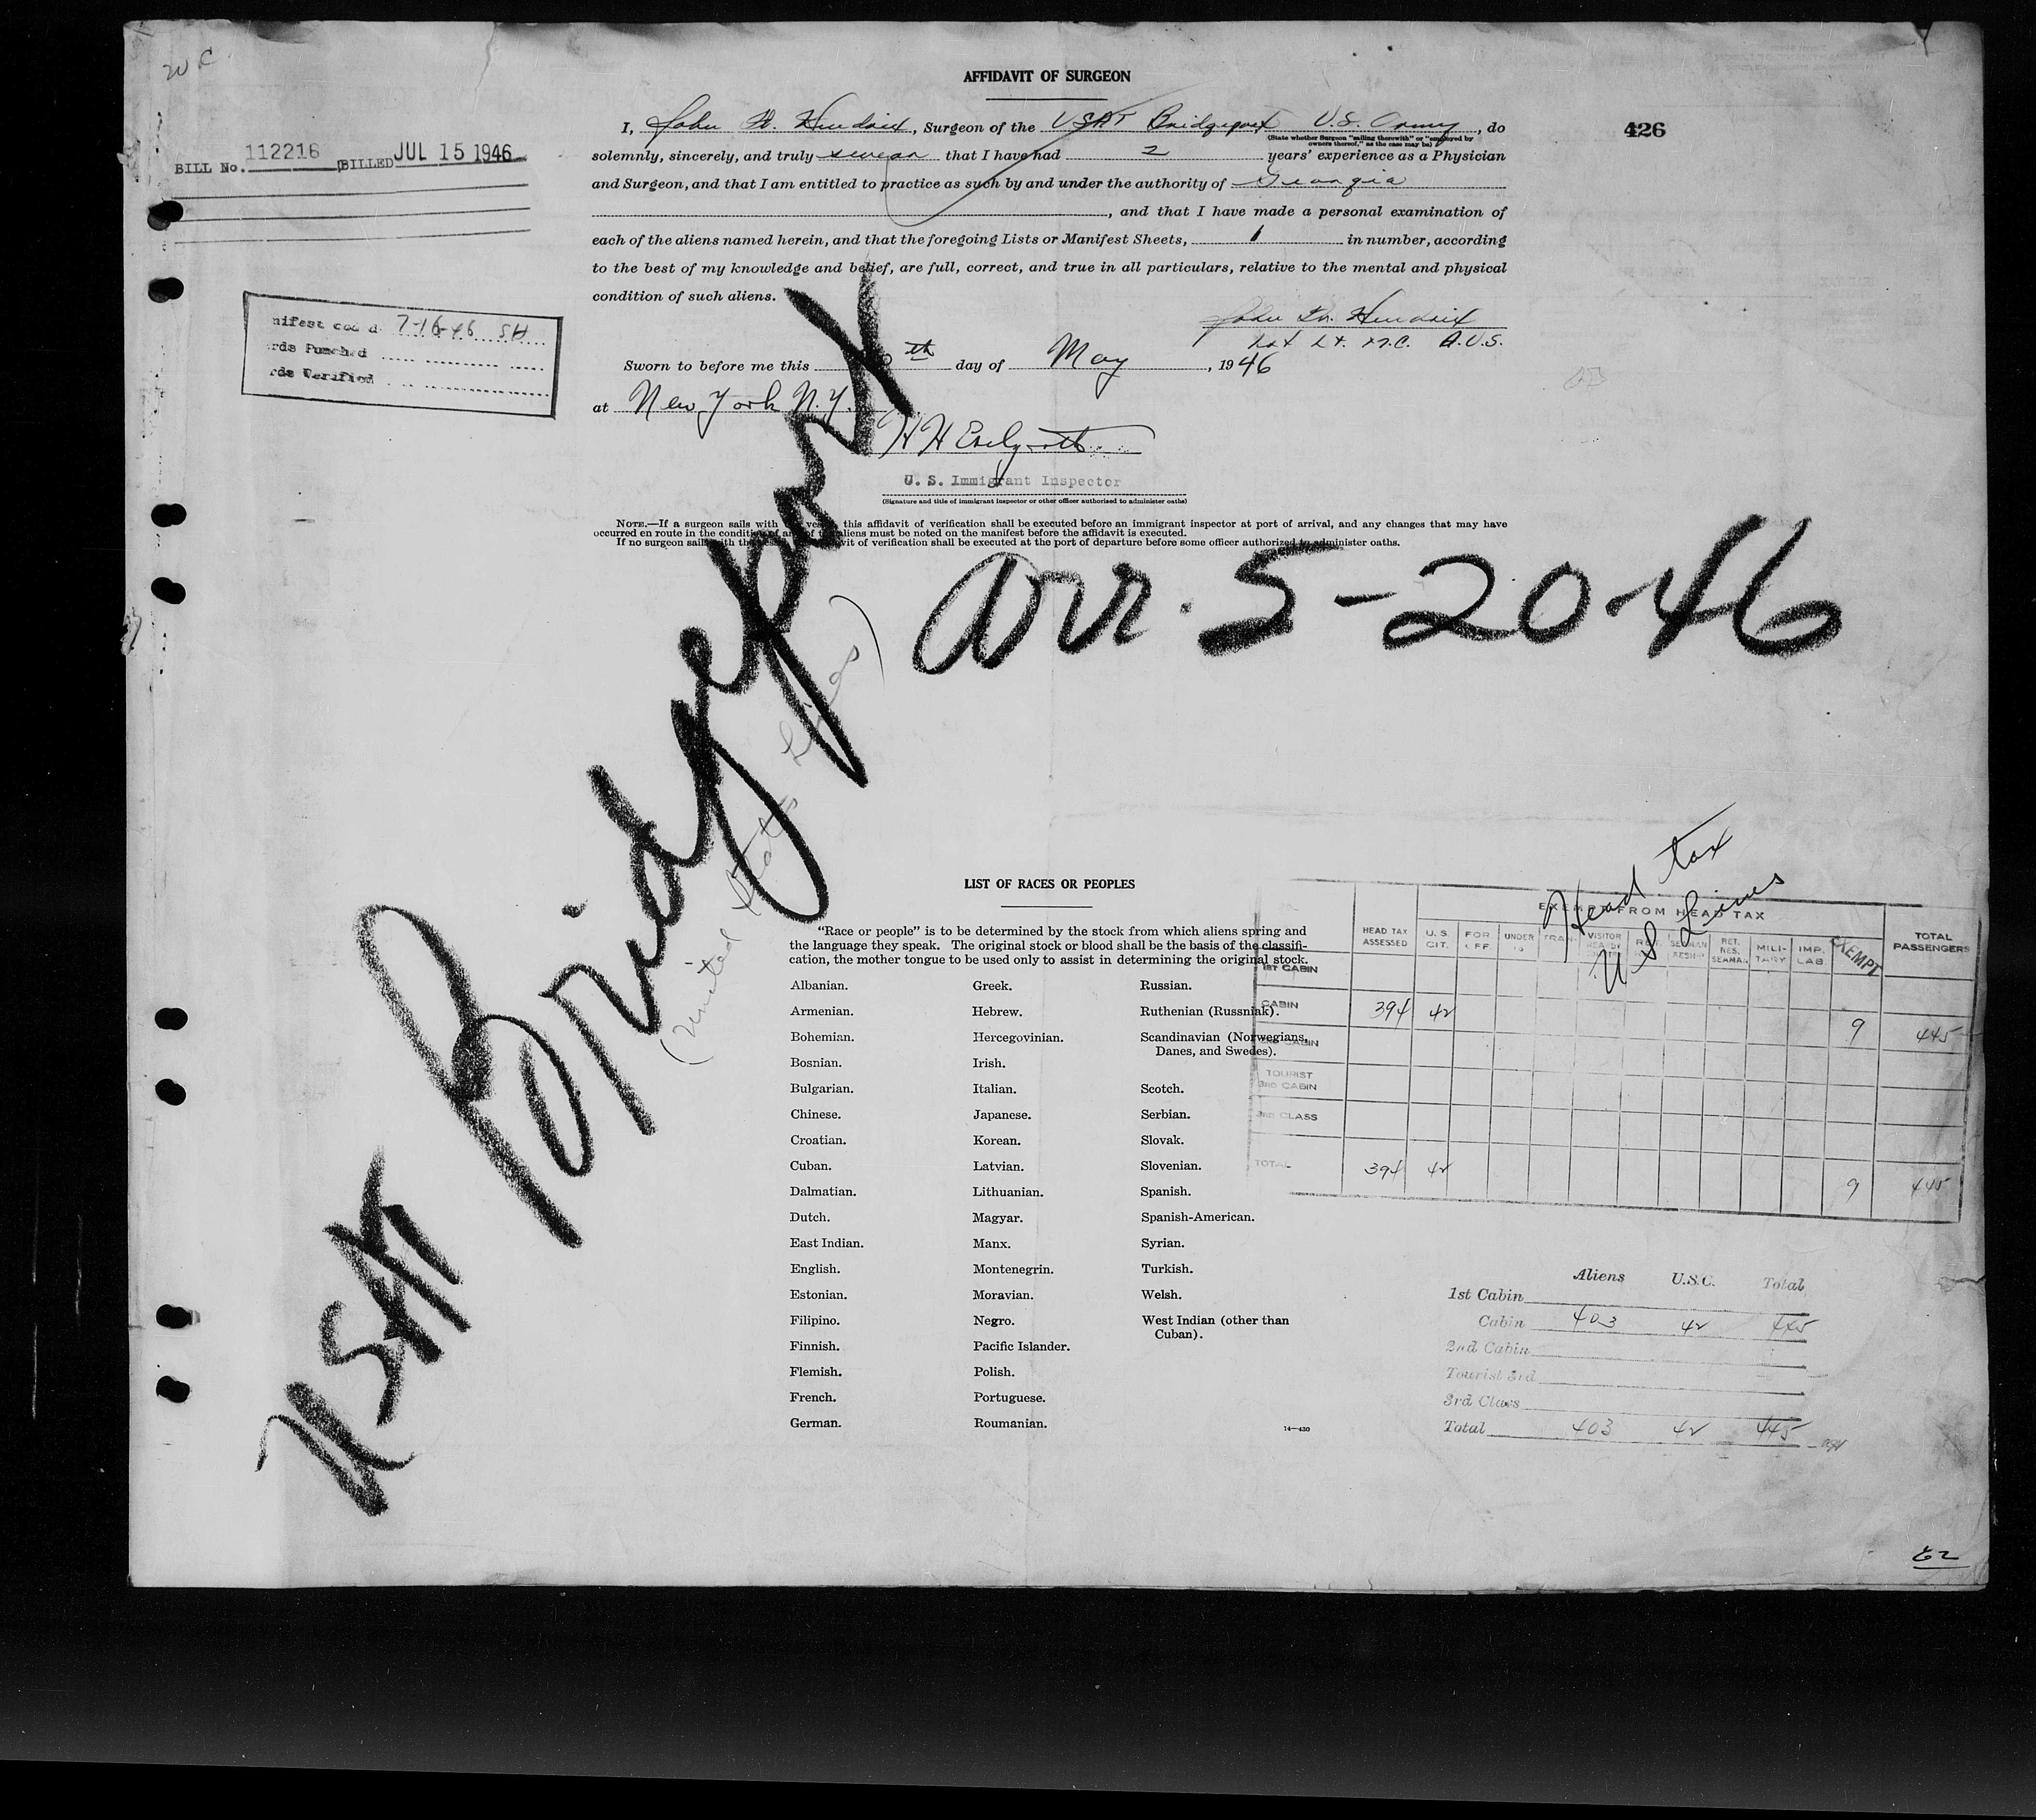 W C
AFFIDAVIT OF SURGEON
426
I, John H. Hendrix, Surgeon of the USAT Bridgeport U.S. Army, do
(State whether Surgeon "sailing therewith" or "employed by
owners thereof," as the case may be)
BILL No. 112216 BILLED JUL 15 1946
solemnly, sincerely, and truly swear that I have had 2 years' experience as a Physician
and Surgeon, and that I am entitled to practice as such by and under the authority of Georgia
, and that I have made a personal examination of
each of the aliens named herein, and that the foregoing Lists or Manifest Sheets, 1 in number, according
to the best of my knowledge and belief, are full, correct, and true in all particulars, relative to the mental and physical
condition of such aliens.
nifest cod d 7-16-46 SH
rds Punched
rds Verified
John H. Hendrix
1st Lt. M.C. A.U.S.
Sworn to before me this th day of May, 1946
at New York N.Y.
U. S. Immigrant Inspector
(Signature and title of immigrant inspector or other officer authorized to administer oaths)
NOTE.—If a surgeon sails with vessel, this affidavit of verification shall be executed before an immigrant inspector at port of arrival, and any changes that may have
occurred en route in the condition of any of the aliens must be noted on the manifest before the affidavit is executed.
If no surgeon sails with the vit of verification shall be executed at the port of departure before some officer authorized to administer oaths.
arr. 5-20-46
USAT Bridgeport
(United States Lines)
LIST OF RACES OR PEOPLES
"Race or people" is to be determined by the stock from which aliens spring and
the language they speak. The original stock or blood shall be the basis of the classifi-
cation, the mother tongue to be used only to assist in determining the original stock.
Albanian. Greek. Russian.
Armenian. Hebrew. Ruthenian (Russniak).
Bohemian. Hercegovinian. Scandinavian (Norwegians,
Danes, and Swedes).
Bosnian. Irish.
Bulgarian. Italian. Scotch.
Chinese. Japanese. Serbian.
Croatian. Korean. Slovak.
Cuban. Latvian. Slovenian.
Dalmatian. Lithuanian. Spanish.
Dutch. Magyar. Spanish-American.
East Indian. Manx. Syrian.
English. Montenegrin. Turkish.
Estonian. Moravian. Welsh.
Filipino. Negro. West Indian (other than
Cuban).
Finnish. Pacific Islander.
Flemish. Polish.
French. Portuguese.
German. Roumanian.
14—430
Head tax
U S Lines
EXEMPT FROM HEAD TAX
HEAD TAX ASSESSED U. S. CIT. FOR OFF UNDER 16 TRAN. VISITOR RET. RES. SEAMAN MILI-TARY IMP. LAB EXEMPT TOTAL PASSENGERS
1ST CABIN
CABIN 394 42 9 445
2ND CABIN
TOURIST
3RD CABIN
3RD CLASS
TOTAL 394 42 9 445
Aliens U.S.C. Total
1st Cabin
Cabin 403 42 445
2nd Cabin
Tourist 3rd
3rd Class
Total 403 42 445
62